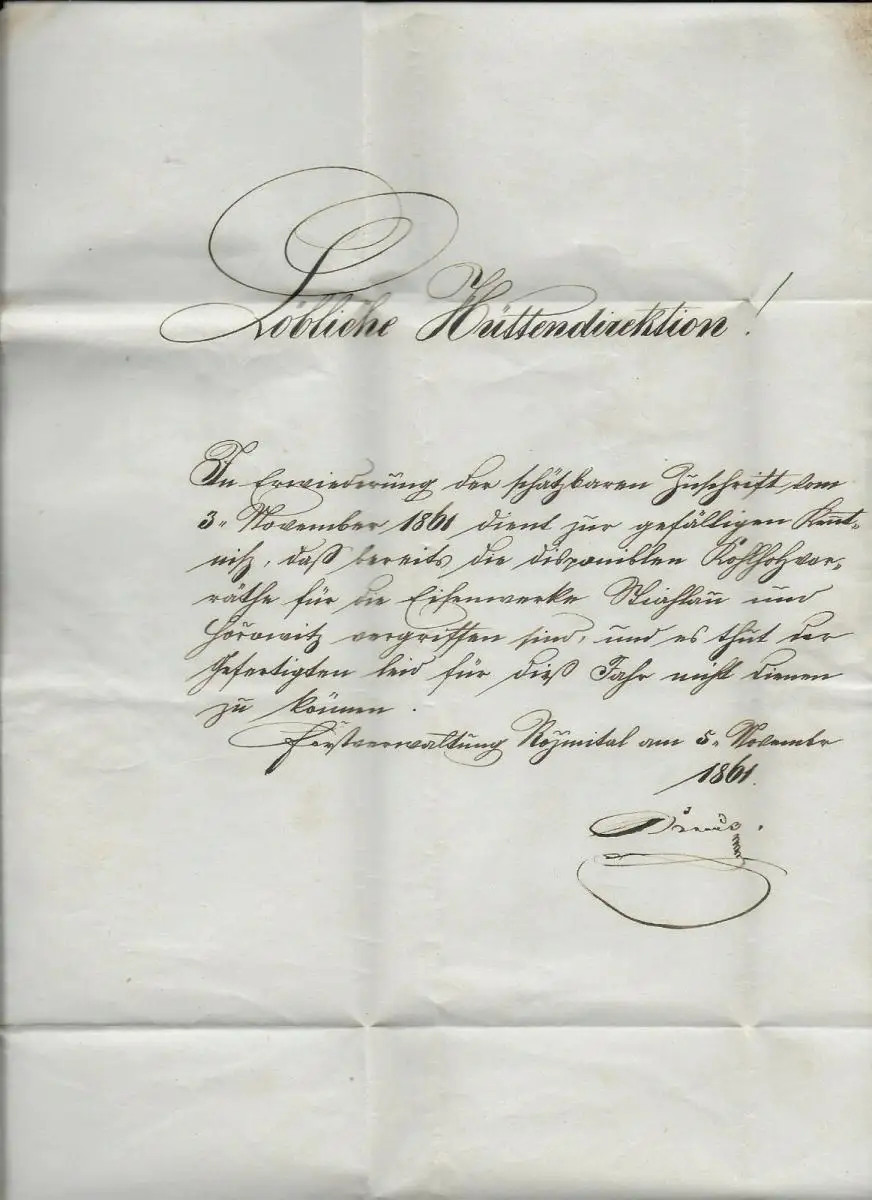 Löbliche Hüttendirektion!
In Erwiederung der schätzbaren Zuschrift vom
3. November 1861 dient zur gefälligen Kennt-
niß, daß bereits die disponiblen Kohlholzvor-
räthe für die Eisenwerke Stiahlau und
Hořowitz vergriffen sind, und es thut der
Gefertigten leid für dieß Jahr nicht dienen
zu können.
Forstverwaltung Rožmital am 5. November
1861.